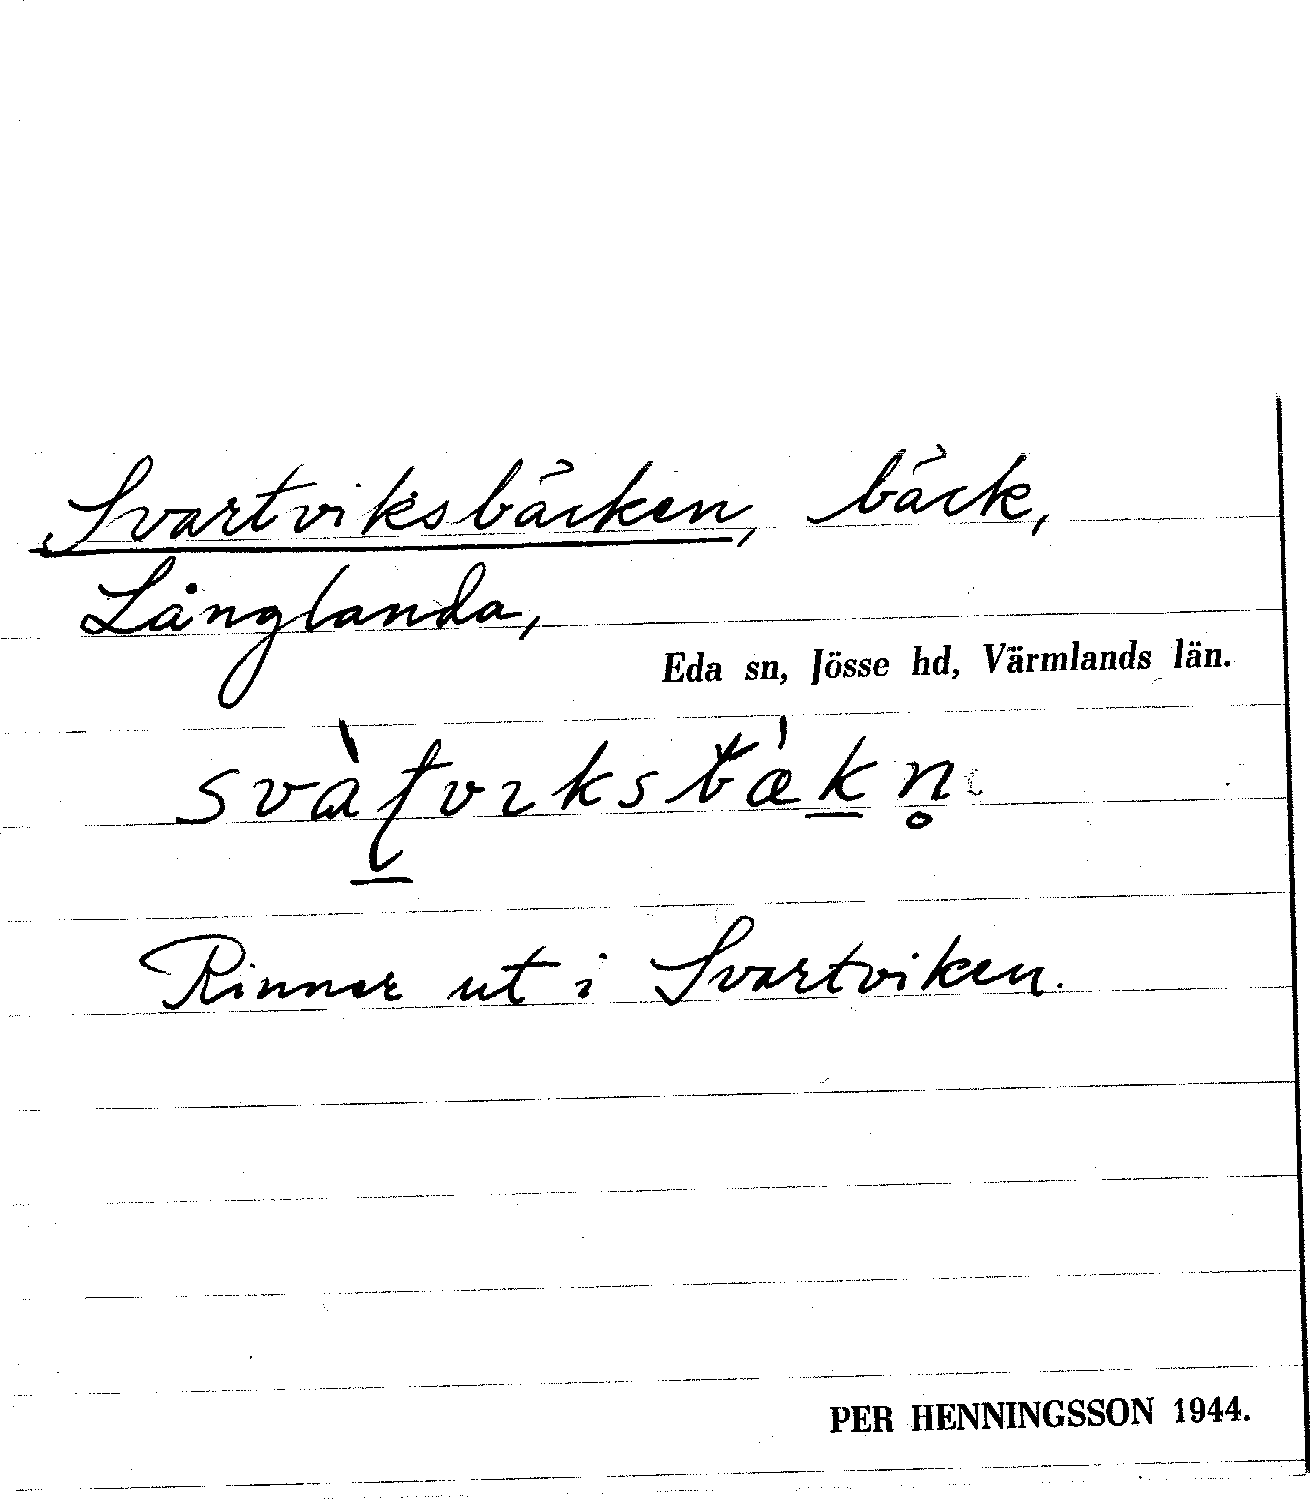 Svartviksbäcken, bäck,
Långlanda,
Eda sn, Jösse hd, Värmlands län.
svàʈvıksbæ̀kn̥
Rinner ut i Svartviken.
PER HENNINGSSON 1944.